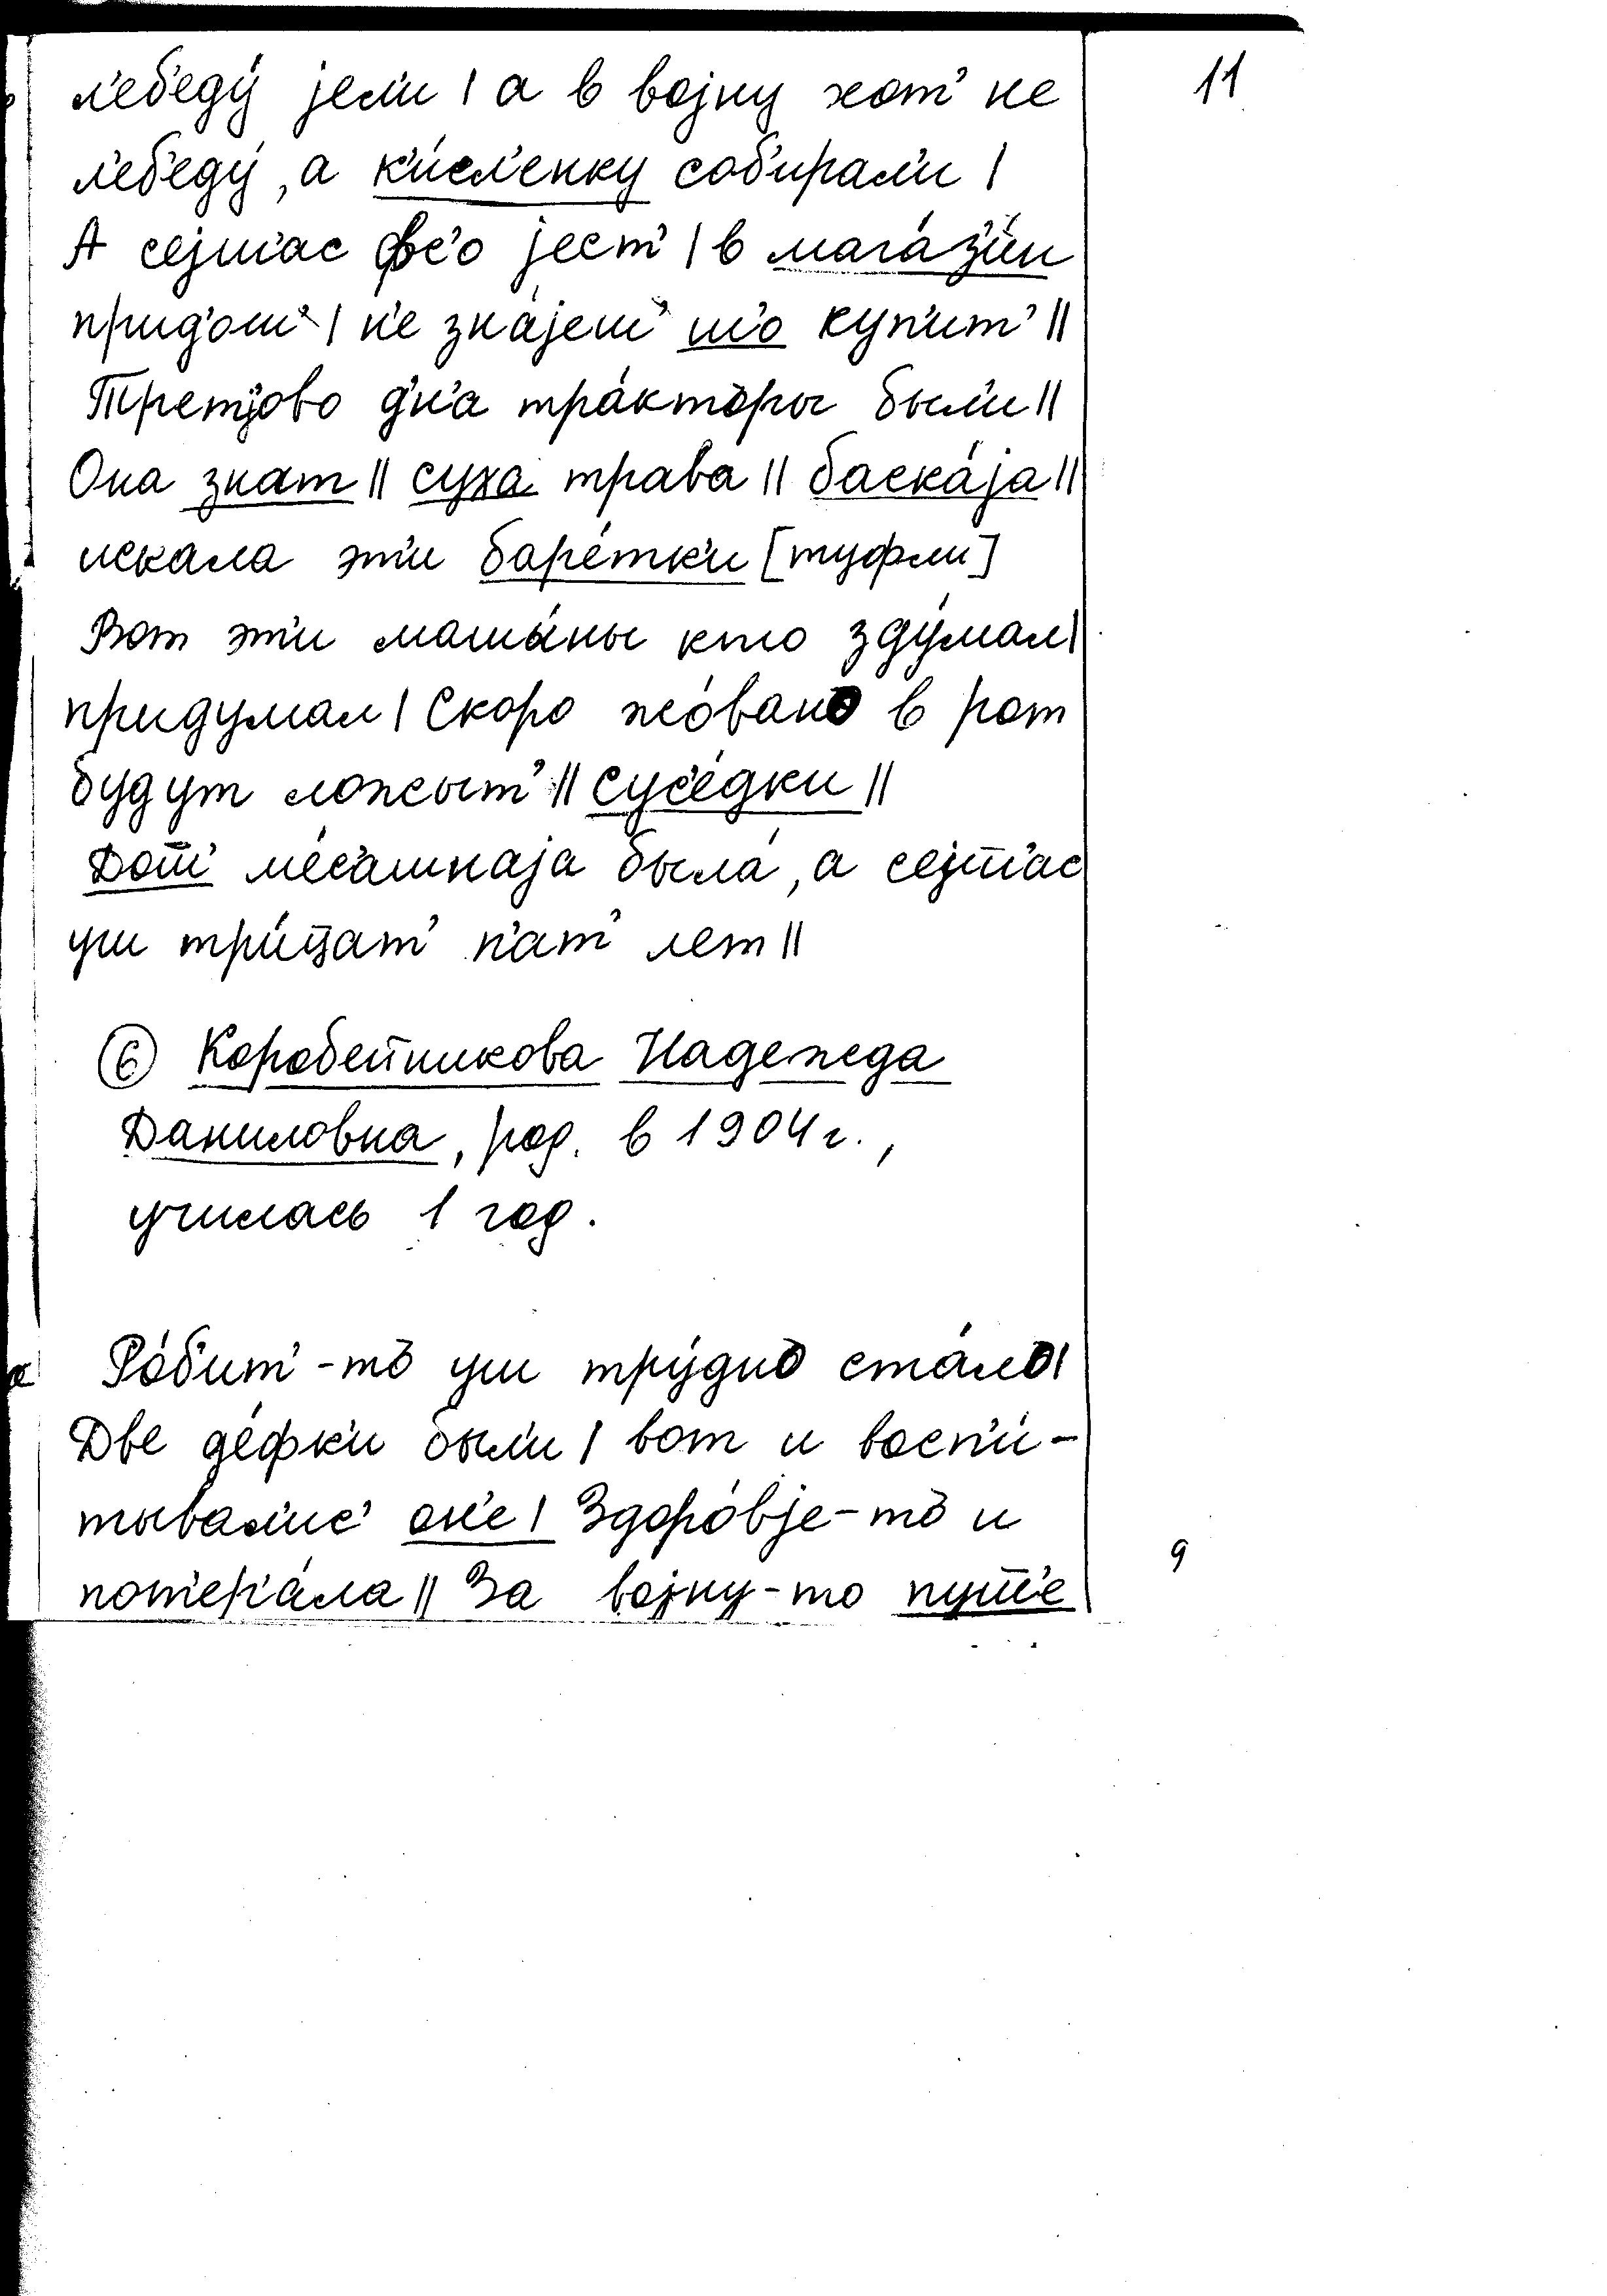 л'еб'еду́ јел'и | а в војну хот' не
11
л'еб'еду́, а к'и́сл'енку соб'ирал'и |
А сејш'ас фс'о јест' | в мага́з'и́н
прид'ош' | н'е зна́јеш' ш'о куп'ит' ||
Третјово д'н'а тра́кторы был'и ||
Она знат || суха трава || баска́ја ||
искала эт'и баре́тк'и [туфли]
Вот эт'и машы́ны кто зду́мал |
придумал | Скоро жо́вано в рот
будут ложыт' || сус'е́дки ||
Дот'и м'е́с'ашнаја была́, а сејт'ас
уш три́цат' п'ат' лет ||
⑥ Коробейникова Надежда
Даниловна, род. в 1904 г.,
училась 1 год.
Ро́б'ит'-то уш тру́дно ста́ло |
Две де́фк'и был'и | вот и восп'и-
тывал'ис' он'е | Здоро́вје-то и
пот'ер'а́ла || За војну-то пуш'е
9